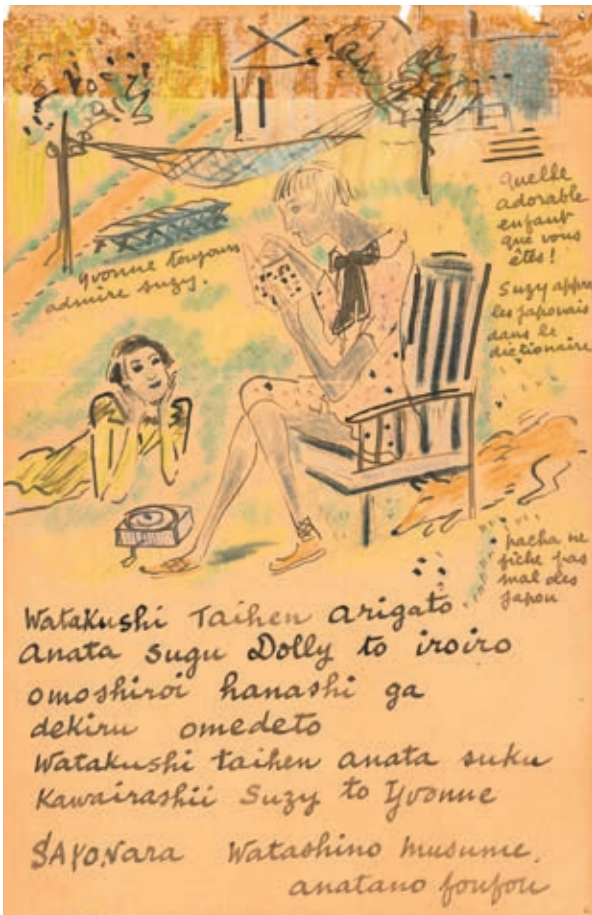 quelle
adorable
enfant
que vous
êtes!
Suzy appre
les japonais
dans le
dictionaire
Yvonne toujours
admire suzy.
pacha ne
fiche pas
mal des
Japon
Watakushi Taihen arigato
anata sugu Dolly to iroiro
omoshiroi hanashi ga
dekiru omedeto
Watakushi taihen anata suku
Kawairashii Suzy to Yvonne
SAYONara Watashino musume.
anatano foufou